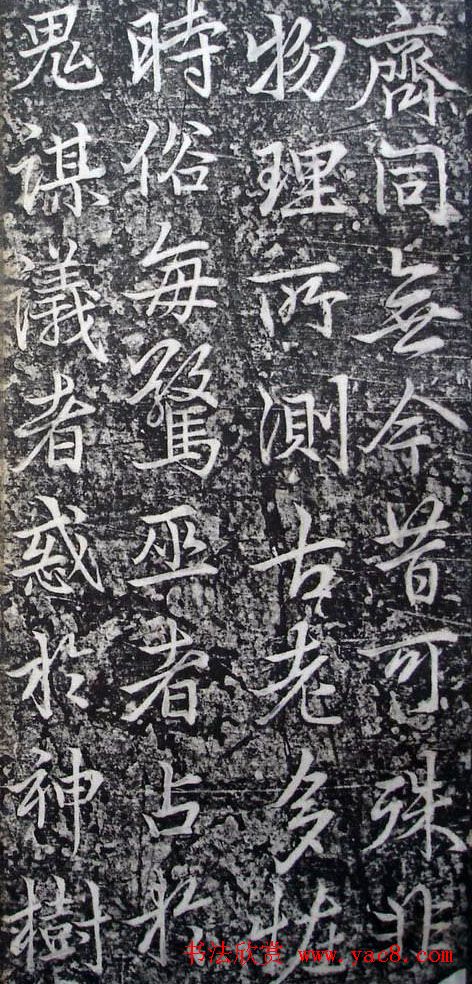 齊同無今昔可殊非
物理所測古老多恠
時俗每驚巫者占於
鬼謀議者惑於神樹
书法欣赏 www.yac8.com